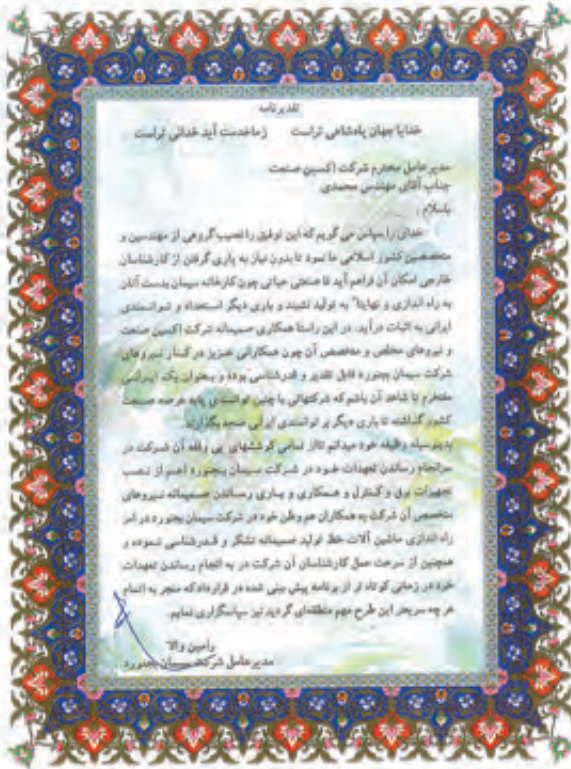 تقدیرنامه
خدایا جهان پادشاهی تراست ز ماخدمت آید خدائی تراست
مدیر عامل محترم شرکت اکسین صنعت
جناب آقای مهندس محمدی
باسلام
خدای را سپاس می گویم که این توفیق را نصیب گروهی از مهندسین و
متخصصین کشور اسلامی ما نمود تا بدون نیاز به یاری گرفتن از کارشناسان
خارجی امکان آن فراهم آید تا صنعتی حیاتی چون کارخانه سیمان بدست آنان
به راه اندازی و نهایتا" به تولید نشیند و باری دیگر استعداد و توانمندی
ایرانی به اثبات درآید. در این راستا همکاری صمیمانه شرکت اکسین صنعت
و نیروهای مخلص و متخصص آن چون همکارانی عزیز در کنار نیروهای
شرکت سیمان بجنورد قابل تقدیر و قدرشناسی بوده و بعنوان یک ایرانی
مفتخرم تا شاهد آن باشم که شرکتهائی با چنین توانمندی پابه عرصه صنعت
کشور گذاشته تا باری دیگر بر توانمندی ایرانی صحه بگذارند.
بدینوسیله وظیفه خود میدانم تااز تمامی کوششهای بی وقفه آن شرکت در
سرانجام رساندن تعهدات خود در شرکت سیمان بجنورد اعم از نصب
تجهیزات برق و کنترل و همکاری و یاری رساندن صمیمانه نیروهای
متخصص آن شرکت به همکاران هم وطن خود در شرکت سیمان بجنورد در امر
راه اندازی ماشین آلات خط تولید صمیمانه تشکر و قدرشناسی نموده و
همچنین از سرعت عمل کارشناسان آن شرکت در به انجام رساندن تعهدات
خود در زمانی کوتاه تر از برنامه پیش بینی شده در قرارداد که منجر به اتمام
هر چه سریعتر این طرح مهم منطقه‌ای گردید نیز سپاسگزاری نمایم.
رامین والا
مدیر عامل شرکت سیمان بجنورد